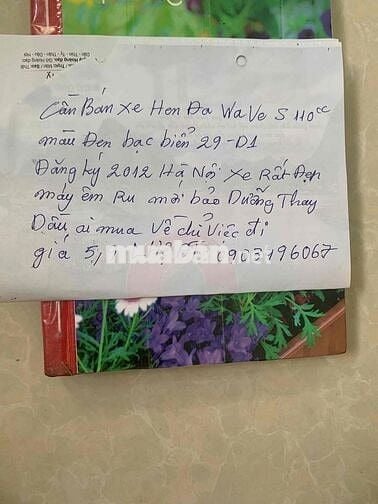 Cần Bán xe Hon Đa Wave S 110cc
màu Đen bạc biển 29-D1
Đăng ký 2012 Hà Nội xe Rất Đẹp
máy êm Ru mới bảo Dưỡng Thay
Dầu ai mua về chỉ việc đi
giá 5,
muaban.net